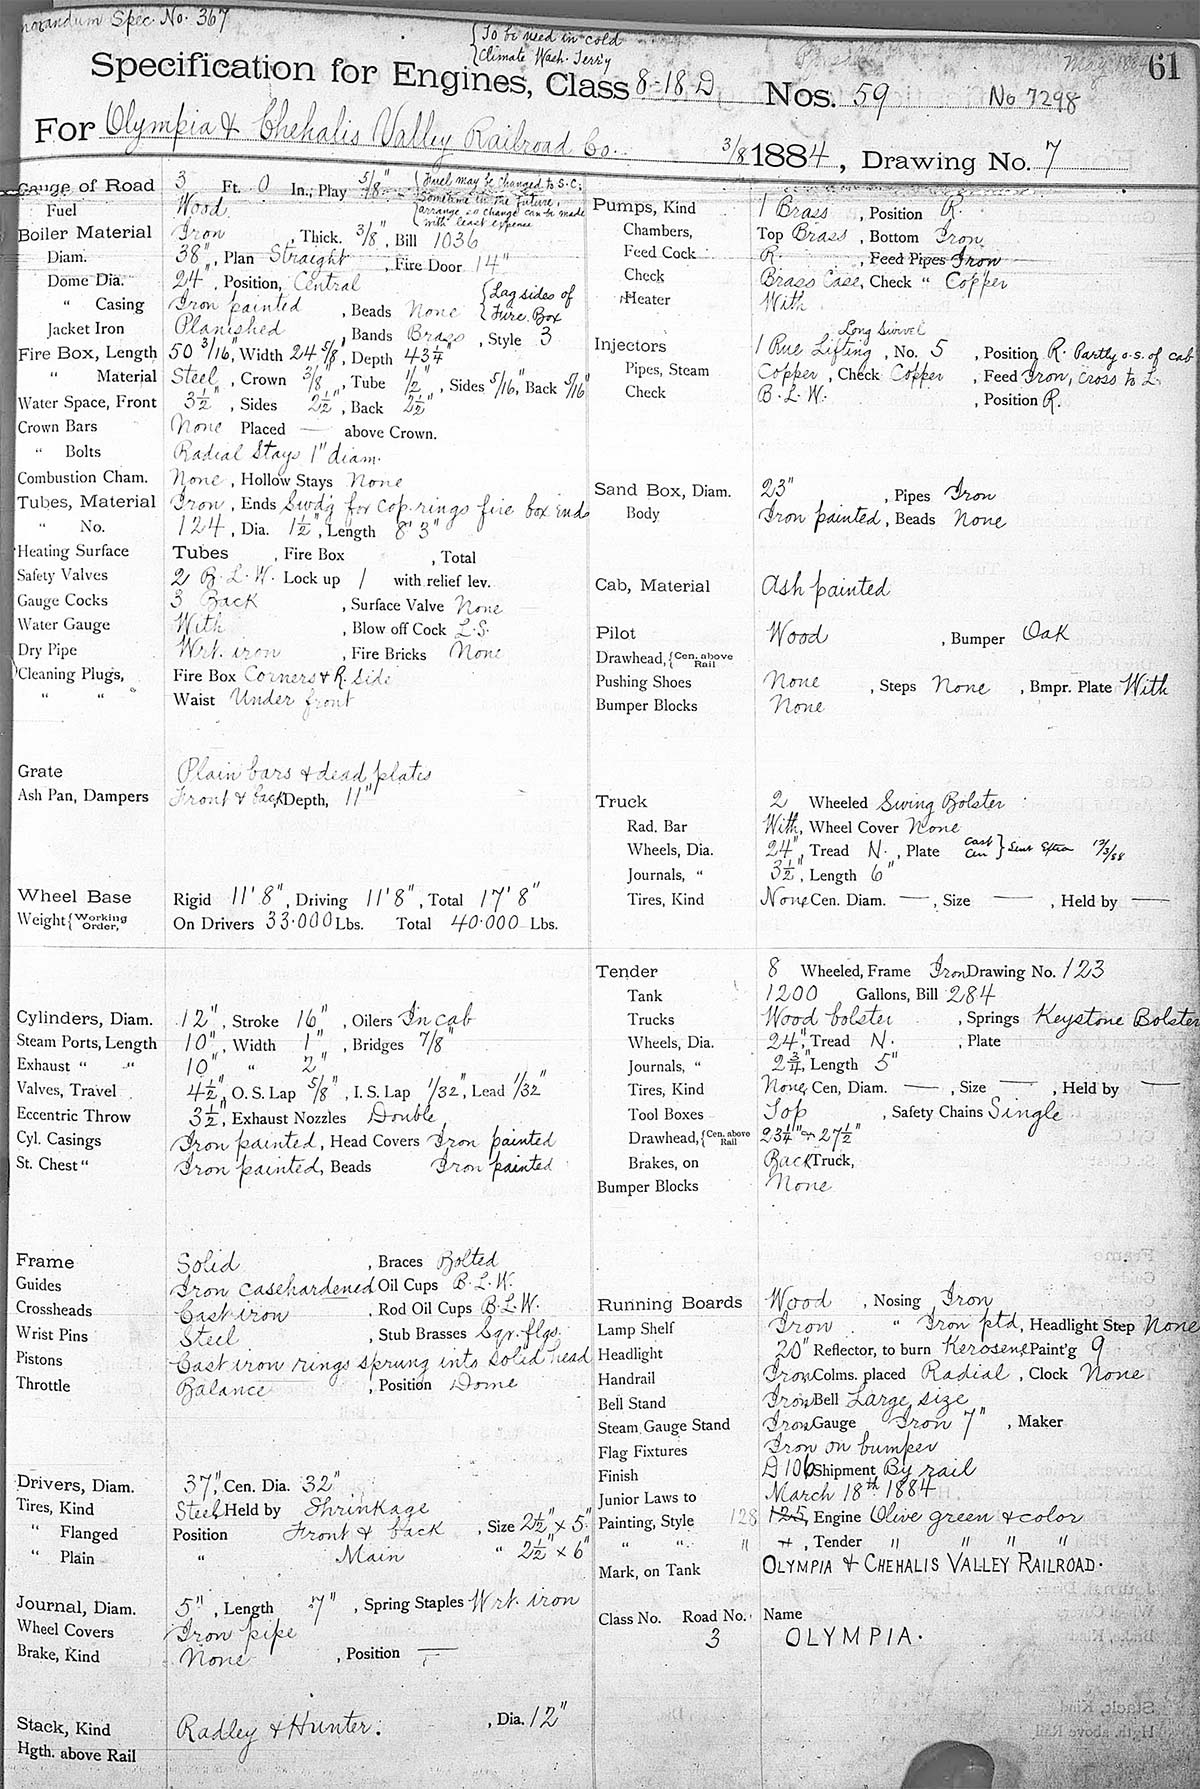 Memorandum Spec. No. 367
{To be used in cold
Climate Wash. Terr'y
61
Specification for Engines, Class 8-18 D Nos. 59 No 7298
For Olympia & Chehalis Valley Railroad Co. 3/8 1884, Drawing No. 7
Gauge of Road 3 Ft. 0 In.; Play 5/8"
{Fuel may be changed to S.C.
Sometime in the future,
arrange so change can be made
with least expense
Fuel Wood
Boiler Material Iron, Thick. 3/8", Bill 1036
Diam. 38", Plan Straight, Fire Door 14"
Dome Dia. 24", Position, Central
" Casing Iron painted, Beads None {Lag sides of
Fire Box
Jacket Iron Planished, Bands Brass, Style 3
Fire Box, Length 50 3/16", Width 24 5/8", Depth 43 1/4"
" Material Steel, Crown 3/8", Tube 1/2", Sides 5/16" Back 5/16"
Water Space, Front 3 1/2", Sides 2 1/2", Back 2 1/2"
Crown Bars None Placed — above Crown.
" Bolts Radial Stays 1" diam.
Combustion Cham. None, Hollow Stays None
Tubes, Material Iron, Ends Swd'g for cop. rings fire box ends
" No. 124, Dia. 1 1/2", Length 8' 3"
Heating Surface Tubes , Fire Box , Total
Safety Valves 2 B.L.W. Lock up 1 with relief lev.
Gauge Cocks 3 Back, Surface Valve None
Water Gauge With, Blow off Cock L.S.
Dry Pipe Wrt. iron, Fire Bricks None
Cleaning Plugs, Fire Box Corners & R. Side
" " Waist Under front
Grate Plain bars & dead plates
Ash Pan, Dampers Front & back Depth, 11"
Wheel Base Rigid 11' 8", Driving 11' 8", Total 17' 8"
Weight {Working Order, On Drivers 33.000 Lbs. Total 40.000 Lbs.
Cylinders, Diam. 12", Stroke 16", Oilers In cab
Steam Ports, Length 10", Width 1", Bridges 7/8"
Exhaust " " 10" " 2"
Valves, Travel 4 1/2", O. S. Lap 5/8", I. S. Lap 1/32", Lead 1/32"
Eccentric Throw 3 1/2", Exhaust Nozzles Double
Cyl. Casings Iron painted, Head Covers Iron painted
St. Chest " Iron painted, Beads Iron painted
Frame Solid, Braces Bolted
Guides Iron casehardened Oil Cups B.L.W.
Crossheads Cast iron, Rod Oil Cups B.L.W.
Wrist Pins Steel, Stub Brasses Sqr. flgs.
Pistons Cast iron rings sprung into solid head
Throttle Balance, Position Dome
Drivers, Diam. 37", Cen. Dia. 32"
Tires, Kind Steel Held by Shrinkage
" Flanged Position Front & back, Size 2 1/2" x 5"
" Plain " Main " 2 1/2" x 6"
Journal, Diam. 5", Length 7", Spring Staples Wrt. iron
Wheel Covers Iron pipe
Brake, Kind None, Position —
Stack, Kind Radley & Hunter., Dia. 12"
Hgth. above Rail
Pumps, Kind 1 Brass, Position R.
Chambers, Top Brass, Bottom Iron
Feed Cock R., Feed Pipes Iron
Check Brass Case, Check " Copper
Heater With
Long Swivel
Injectors 1 Rue Lifting, No. 5, Position R. Partly o.s. of cab
Pipes, Steam Copper, Check Copper, Feed Iron, Cross to L.
Check B.L.W., Position R.
Sand Box, Diam. 23", Pipes Iron
Body Iron painted, Beads None
Cab, Material Ash painted
Pilot Wood, Bumper Oak
Drawhead, {Cen. above Rail
Pushing Shoes None, Steps None, Bmpr. Plate With
Bumper Blocks None
Truck 2 Wheeled Swing Bolster
Rad. Bar With, Wheel Cover None
Wheels, Dia. 24", Tread N., Plate Cast } Sent Extra 12/3/88
Journals, " 3 1/2", Length 6"
Tires, Kind None Cen. Diam. —, Size —, Held by —
Tender 8 Wheeled, Frame Iron Drawing No. 123
Tank 1200 Gallons, Bill 284
Trucks Wood bolster, Springs Keystone Bolster
Wheels, Dia. 24", Tread N., Plate
Journals, " 2 3/4", Length 5"
Tires, Kind None, Cen. Diam. —, Size —, Held by —
Tool Boxes Top, Safety Chains Single
Drawhead, {Cen. above Rail 23 1/4" & 27 1/2"
Brakes, on Back Truck,
Bumper Blocks None
Running Boards Wood, Nosing Iron
Lamp Shelf Iron " Iron ptd, Headlight Step None
Headlight 20" Reflector, to burn Kerosene Paint'g 9
Handrail Iron Colms. placed Radial, Clock None
Bell Stand Iron Bell Large size
Steam Gauge Stand Iron Gauge Iron 7", Maker
Flag Fixtures Iron on bumper
Finish D 106 Shipment By rail
Junior Laws to March 18th 1884
Painting, Style 128 125, Engine Olive green & color
" " " , Tender " " " "
Mark, on Tank OLYMPIA & CHEHALIS VALLEY RAILROAD.
Class No. Road No. Name
3 OLYMPIA.